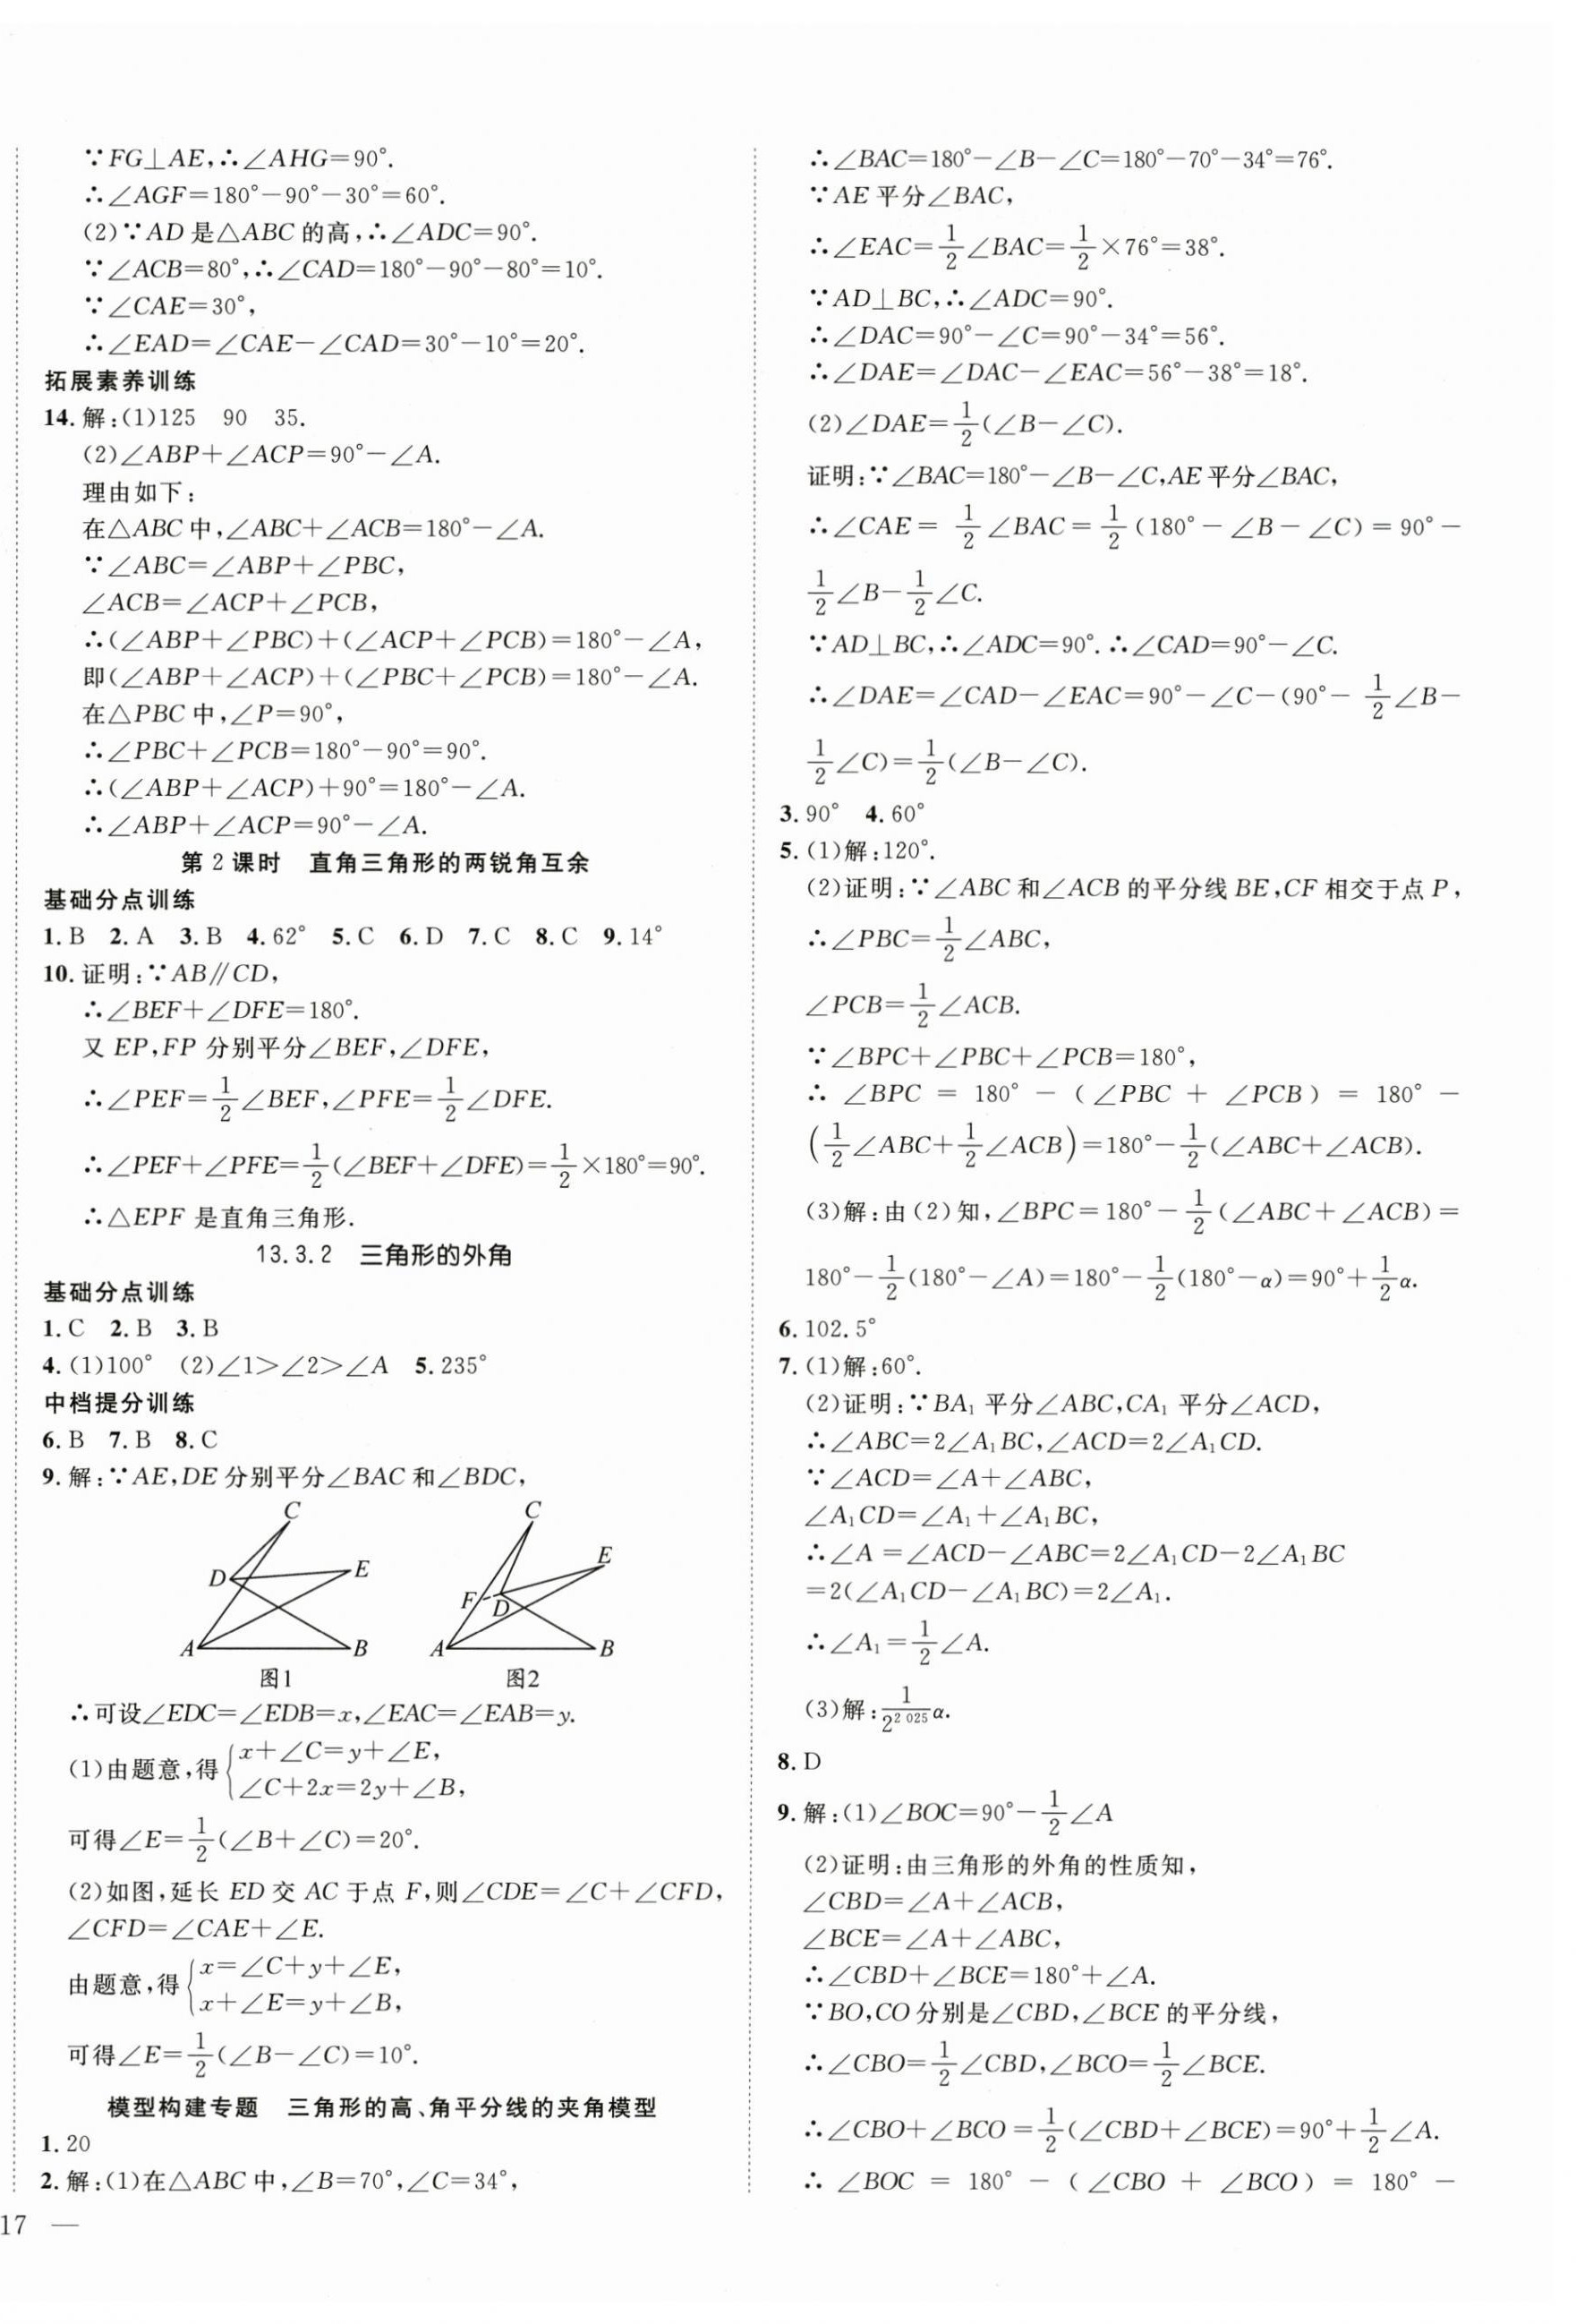 ∵FG⊥AE,∴∠AHG=90°.
∴∠AGF=180°-90°-30°=60°.
(2)∵AD 是△ABC 的高,∴∠ADC=90°.
∵∠ACB=80°,∴∠CAD=180°-90°-80°=10°.
∵∠CAE=30°,
∴∠EAD=∠CAE-∠CAD=30°-10°=20°.
拓展素养训练
14.解:(1)125 90 35.
(2)∠ABP+∠ACP=90°-∠A.
理由如下:
在△ABC 中,∠ABC+∠ACB=180°-∠A.
∵∠ABC=∠ABP+∠PBC,
∠ACB=∠ACP+∠PCB,
∴(∠ABP+∠PBC)+(∠ACP+∠PCB)=180°-∠A,
即(∠ABP+∠ACP)+(∠PBC+∠PCB)=180°-∠A.
在△PBC 中,∠P=90°,
∴∠PBC+∠PCB=180°-90°=90°.
∴(∠ABP+∠ACP)+90°=180°-∠A.
∴∠ABP+∠ACP=90°-∠A.
第 2 课时 直角三角形的两锐角互余
基础分点训练
1.B 2.A 3.B 4.62° 5.C 6.D 7.C 8.C 9.14°
10.证明:∵AB∥CD,
∴∠BEF+∠DFE=180°.
又 EP,FP 分别平分∠BEF,∠DFE,
∴∠PEF=1/2∠BEF,∠PFE=1/2∠DFE.
∴∠PEF+∠PFE=1/2(∠BEF+∠DFE)=1/2×180°=90°.
∴△EPF 是直角三角形.
13.3.2 三角形的外角
基础分点训练
1.C 2.B 3.B
4.(1)100° (2)∠1>∠2>∠A 5.235°
中档提分训练
6.B 7.B 8.C
9.解:∵AE,DE 分别平分∠BAC 和∠BDC,
C
D
E
A
B
图1
C
E
F
D
A
B
图2
∴可设∠EDC=∠EDB=x,∠EAC=∠EAB=y.
(1)由题意,得{x+∠C=y+∠E,
∠C+2x=2y+∠B,
可得∠E=1/2(∠B+∠C)=20°.
(2)如图,延长 ED 交 AC 于点 F,则∠CDE=∠C+∠CFD,
∠CFD=∠CAE+∠E.
由题意,得{x=∠C+y+∠E,
x+∠E=y+∠B,
可得∠E=1/2(∠B-∠C)=10°.
模型构建专题 三角形的高、角平分线的夹角模型
1.20
2.解:(1)在△ABC 中,∠B=70°,∠C=34°,
17 —
∴∠BAC=180°-∠B-∠C=180°-70°-34°=76°.
∵AE 平分∠BAC,
∴∠EAC=1/2∠BAC=1/2×76°=38°.
∵AD⊥BC,∴∠ADC=90°.
∴∠DAC=90°-∠C=90°-34°=56°.
∴∠DAE=∠DAC-∠EAC=56°-38°=18°.
(2)∠DAE=1/2(∠B-∠C).
证明:∵∠BAC=180°-∠B-∠C,AE 平分∠BAC,
∴∠CAE=1/2∠BAC=1/2(180°-∠B-∠C)=90°-
1/2∠B-1/2∠C.
∵AD⊥BC,∴∠ADC=90°.∴∠CAD=90°-∠C.
∴∠DAE=∠CAD-∠EAC=90°-∠C-(90°-1/2∠B-
1/2∠C)=1/2(∠B-∠C).
3.90° 4.60°
5.(1)解:120°.
(2)证明:∵∠ABC 和∠ACB 的平分线 BE,CF 相交于点 P,
∴∠PBC=1/2∠ABC,
∠PCB=1/2∠ACB.
∵∠BPC+∠PBC+∠PCB=180°,
∴ ∠BPC = 180° - (∠PBC + ∠PCB) = 180° -
(1/2∠ABC+1/2∠ACB)=180°-1/2(∠ABC+∠ACB).
(3)解:由(2)知,∠BPC=180°-1/2(∠ABC+∠ACB)=
180°-1/2(180°-∠A)=180°-1/2(180°-α)=90°+1/2α.
6.102.5°
7.(1)解:60°.
(2)证明:∵BA₁ 平分∠ABC,CA₁ 平分∠ACD,
∴∠ABC=2∠A₁BC,∠ACD=2∠A₁CD.
∵∠ACD=∠A+∠ABC,
∠A₁CD=∠A₁+∠A₁BC,
∴∠A=∠ACD-∠ABC=2∠A₁CD-2∠A₁BC
=2(∠A₁CD-∠A₁BC)=2∠A₁.
∴∠A₁=1/2∠A.
(3)解:1/2^2 025 α.
8.D
9.解:(1)∠BOC=90°-1/2∠A
(2)证明:由三角形的外角的性质知,
∠CBD=∠A+∠ACB,
∠BCE=∠A+∠ABC,
∴∠CBD+∠BCE=180°+∠A.
∵BO,CO 分别是∠CBD,∠BCE 的平分线,
∴∠CBO=1/2∠CBD,∠BCO=1/2∠BCE.
∴∠CBO+∠BCO=1/2(∠CBD+∠BCE)=90°+1/2∠A.
∴ ∠BOC = 180° - (∠CBO + ∠BCO) = 180° -